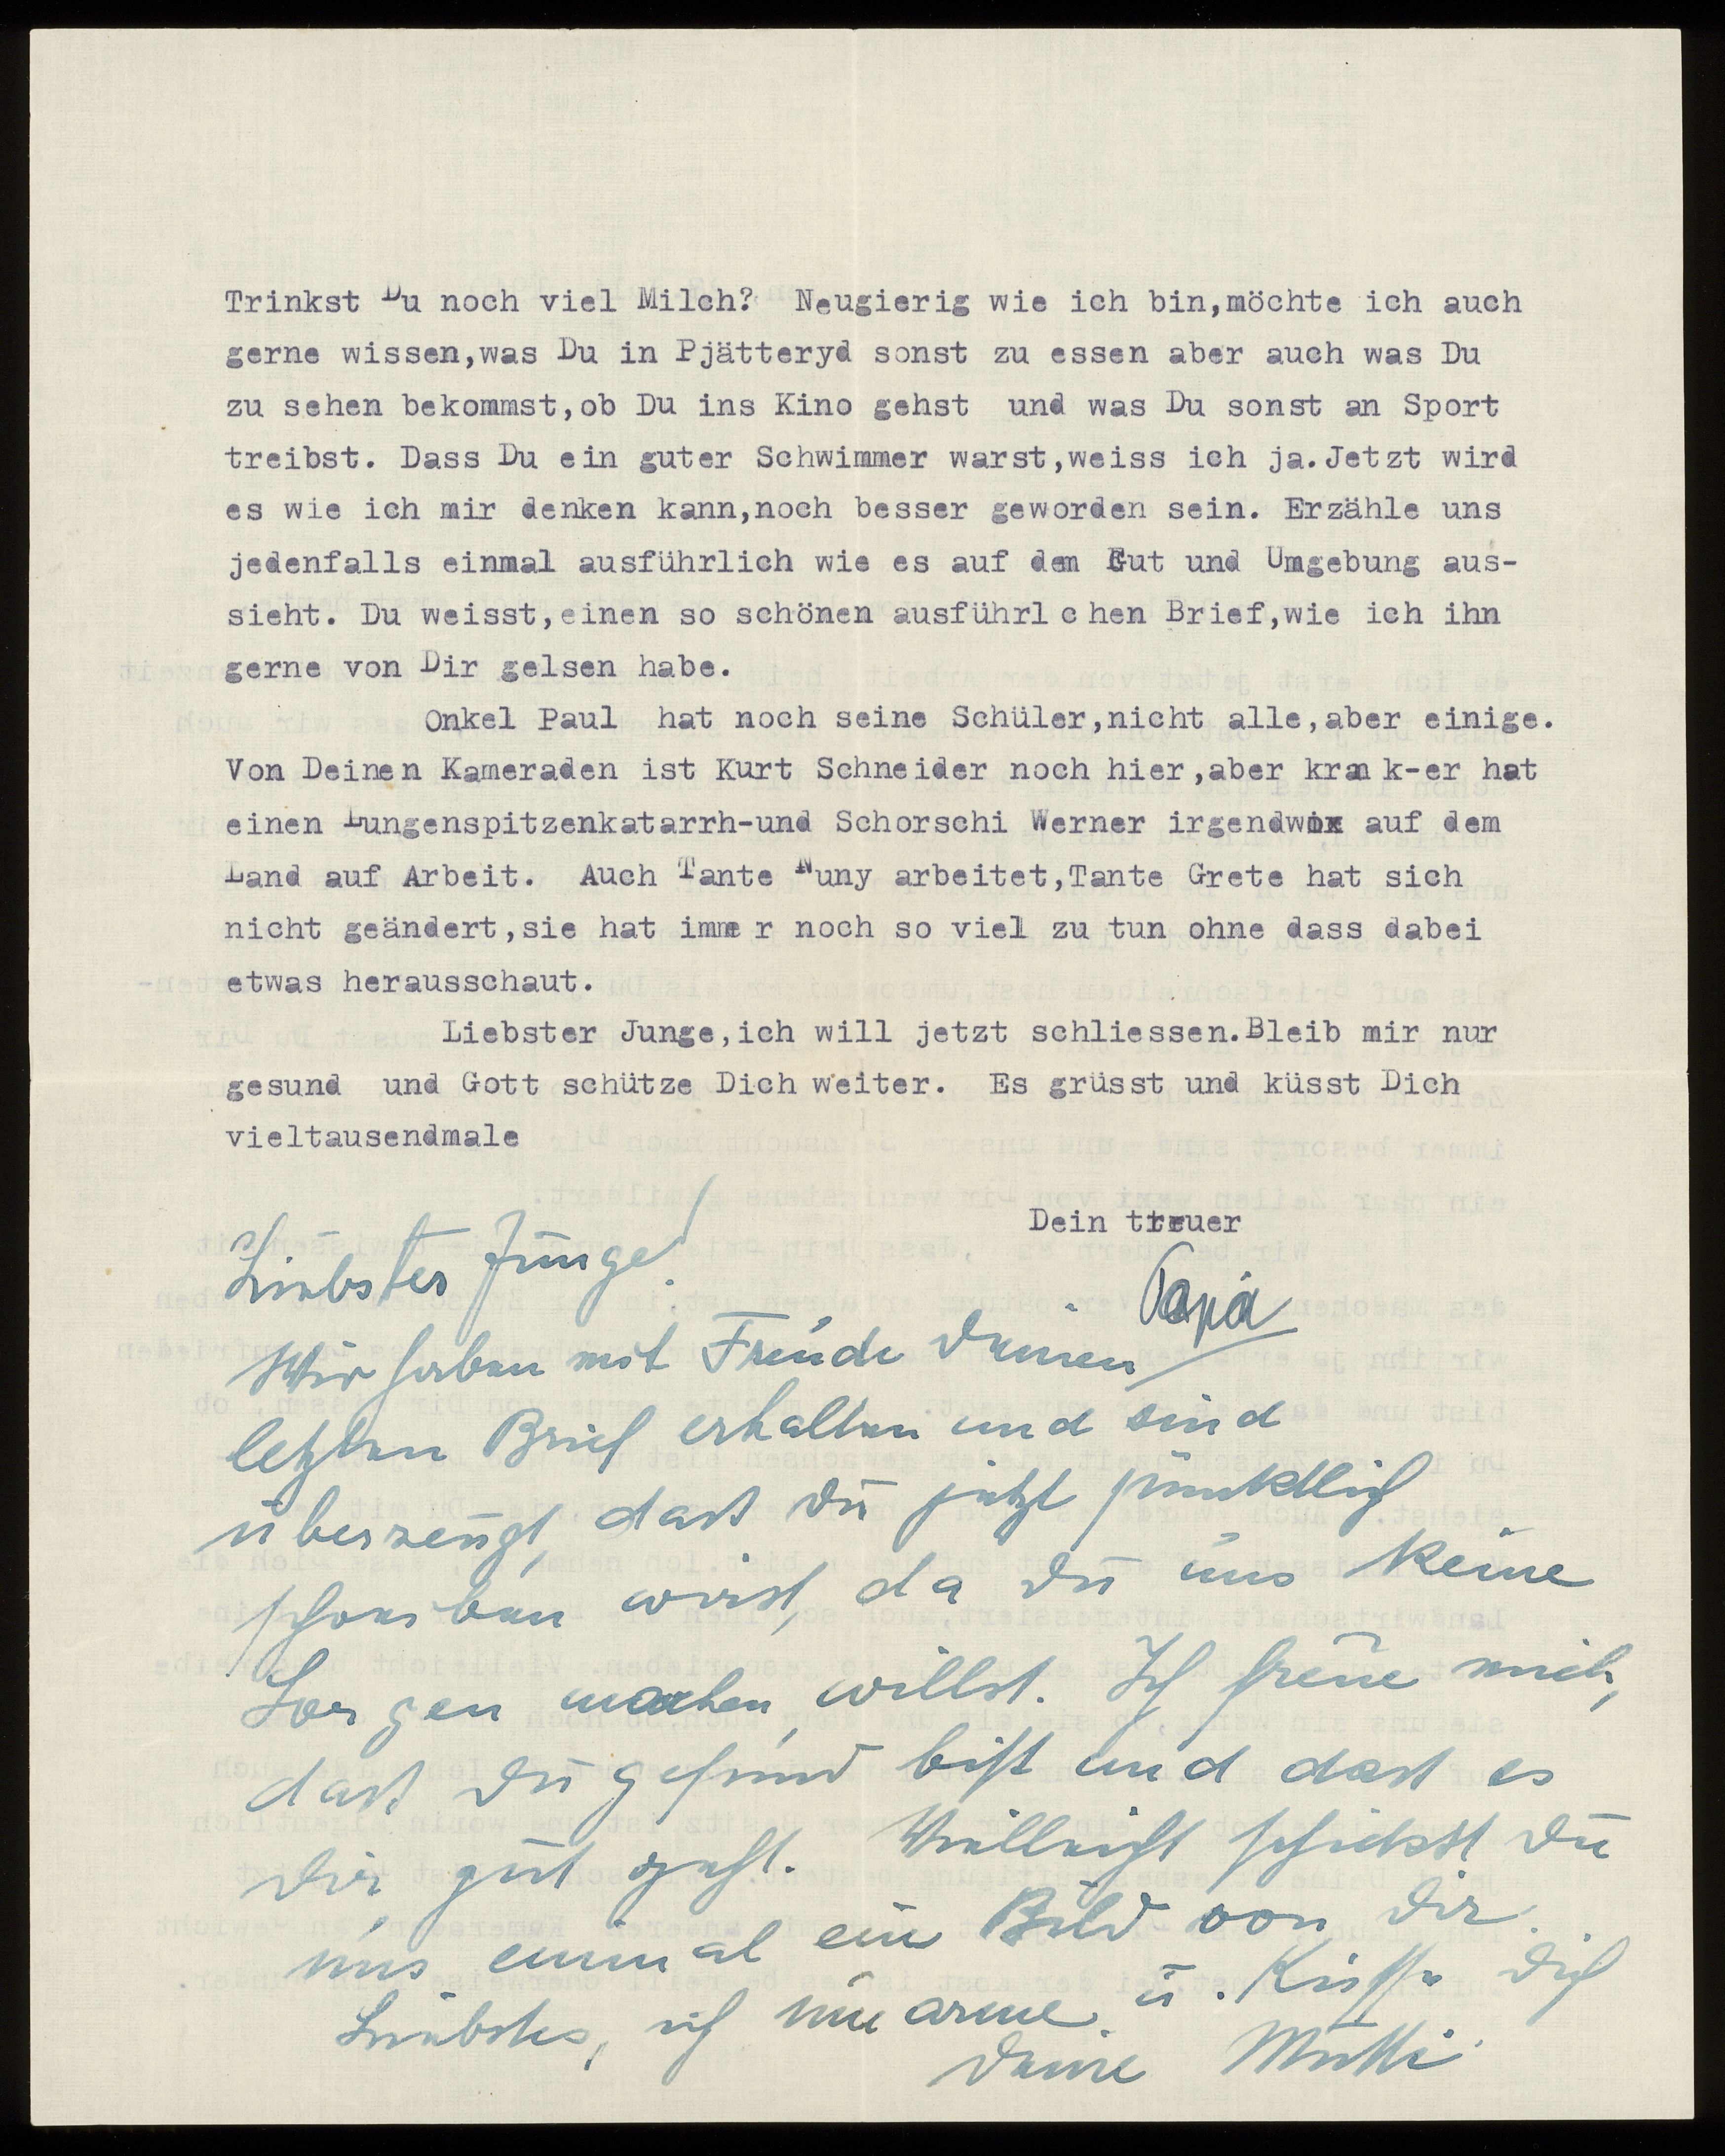 Trinkst Du noch viel Milch?  Neugierig wie ich bin,möchte ich auch
gerne wissen,was Du in Pjätteryd sonst zu essen aber auch was Du
zu sehen bekommst,ob Du ins Kino gehst  und was Du sonst an Sport
treibst. Dass Du ein guter Schwimmer warst,weiss ich ja.Jetzt wird
es wie ich mir denken kann,noch besser geworden sein. Erzähle uns
jedenfalls einmal ausführlich wie es auf dem Gut und Umgebung aus-
sieht. Du weisst,einen so schönen ausführl chen Brief,wie ich ihn
gerne von Dir gelsen habe.
Onkel Paul  hat noch seine Schüler,nicht alle,aber einige.
Von Deinen Kameraden ist Kurt Schneider noch hier,aber krank-er hat
einen Lungenspitzenkatarrh-und Schorschi Werner irgendwo auf dem
Land auf Arbeit.  Auch Tante Nuny arbeitet,Tante Grete hat sich
nicht geändert,sie hat immer noch so viel zu tun ohne dass dabei
etwas herausschaut.
Liebster Junge,ich will jetzt schliessen.Bleib mir nur
gesund  und Gott schütze Dich weiter.  Es grüsst und küsst Dich
vieltausendmale
Dein treuer
Papa
Liebster Junge!
Wir haben mit Freude Deinen
letzten Brief erhalten und sind
überzeugt, dass Du jetzt pünktlich
schreiben wirst, da Du uns keine
Sorgen machen willst. Ich freue mich,
dass Du gesund bist und dass es
Dir gut geht. Vielleicht schickst Du
uns einmal ein Bild von Dir.
Liebstes, ich umarme u. Küsse Dich
Deine Mutti